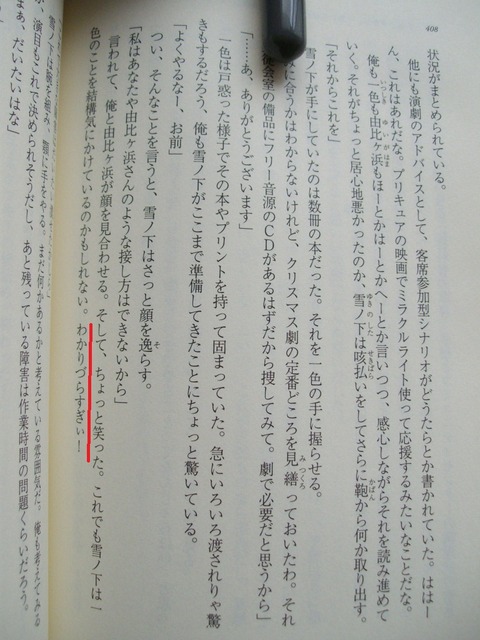 408
状況がまとめられている。
他にも演劇のアドバイスとして、客席参加型シナリオがどうたらとか書かれていた。ははー
ん、これはあれだな。プリキュアの映画でミラクルライト使って応援するみたいなことだな。
俺も一色も由比ヶ浜もほーとかへーとか言いつつ、感心しながらそれを読み進めて
いく。それがちょっと居心地悪かったのか、雪ノ下は咳払いをしてさらに鞄から何か取り出す。
「それからこれを」
雪ノ下が手にしていたのは数冊の本だった。それを一色の手に握らせる。
に合うかはわからないけれど、クリスマス劇の定番どころを見繕っておいたわ。それ
徒会室の備品にフリー音源のCDがあるはずだから捜してみて。劇で必要だと思うから」
「……あ、ありがとうございます」
一色は戸惑った様子でその本やプリントを持って固まっていた。急にいろいろ渡されりゃ驚
きもするだろう、俺も雪ノ下がここまで準備してきたことにちょっと驚いている。
「よくやるなー、お前」
つい、そんなことを言うと、雪ノ下はさっと顔を逸らす。
「私はあなたや由比ヶ浜さんのような接し方はできないから」
言われて、俺と由比ヶ浜が顔を見合わせる。そして、ちょっと笑った。これでも雪ノ下は一
色のことを結構気にかけているのかもしれない。わかりづらすぎぃー
雪ノ下は腕を組み、顎に手をやる。まだ何かあるかと考えている雰囲気だ。俺も考えてみる
、演目もこれで決められそうだし、あと残っている障害は作業時間の問題くらいだろう。
まぁ、だいたいはな」